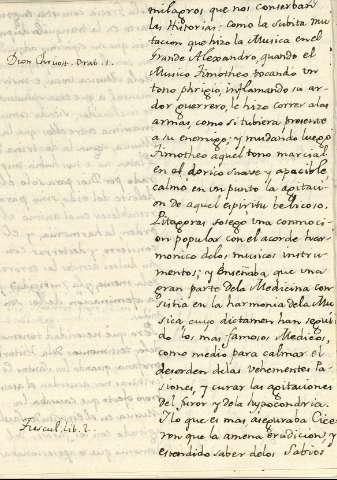 milagros que nos conserban
las Historias: como la subita mu-
tacion que hizo la Musica en el
Grande Alexandro, quando el
Dion Chrisost. Orab. 1.
Musico Timotheo tocando un
tono phrigio, inflamando su ar-
dor guerrero, le hizo correr alas
armas, como si tubiera presente
a su enemigo; y mudando luego
Timotheo aquel tono marcial
en el dorico suave y apacible,
calmó en un punto la agitaci-
on de aquel espiritu belicoso.
Pitagoras sosegó una conmoci-
on popular con el acorde har-
monico delos musicos instru-
mentos; y Enseñaba, que una
gran parte dela Medicina con
sistia en la harmonia dela Mu-
sica, cuio dictamen han segui-
do los mas famosos Medicos,
como medio para calmar el
desorden delas vehementes Pa-
siones, y curar las agitaciones
del furor y dela hypocondria.
Tuscul. lib. 2.
Y lo que es mas, aseguraba Cice-
ron que la amena erudicion, y
estendido saber delos Sabios